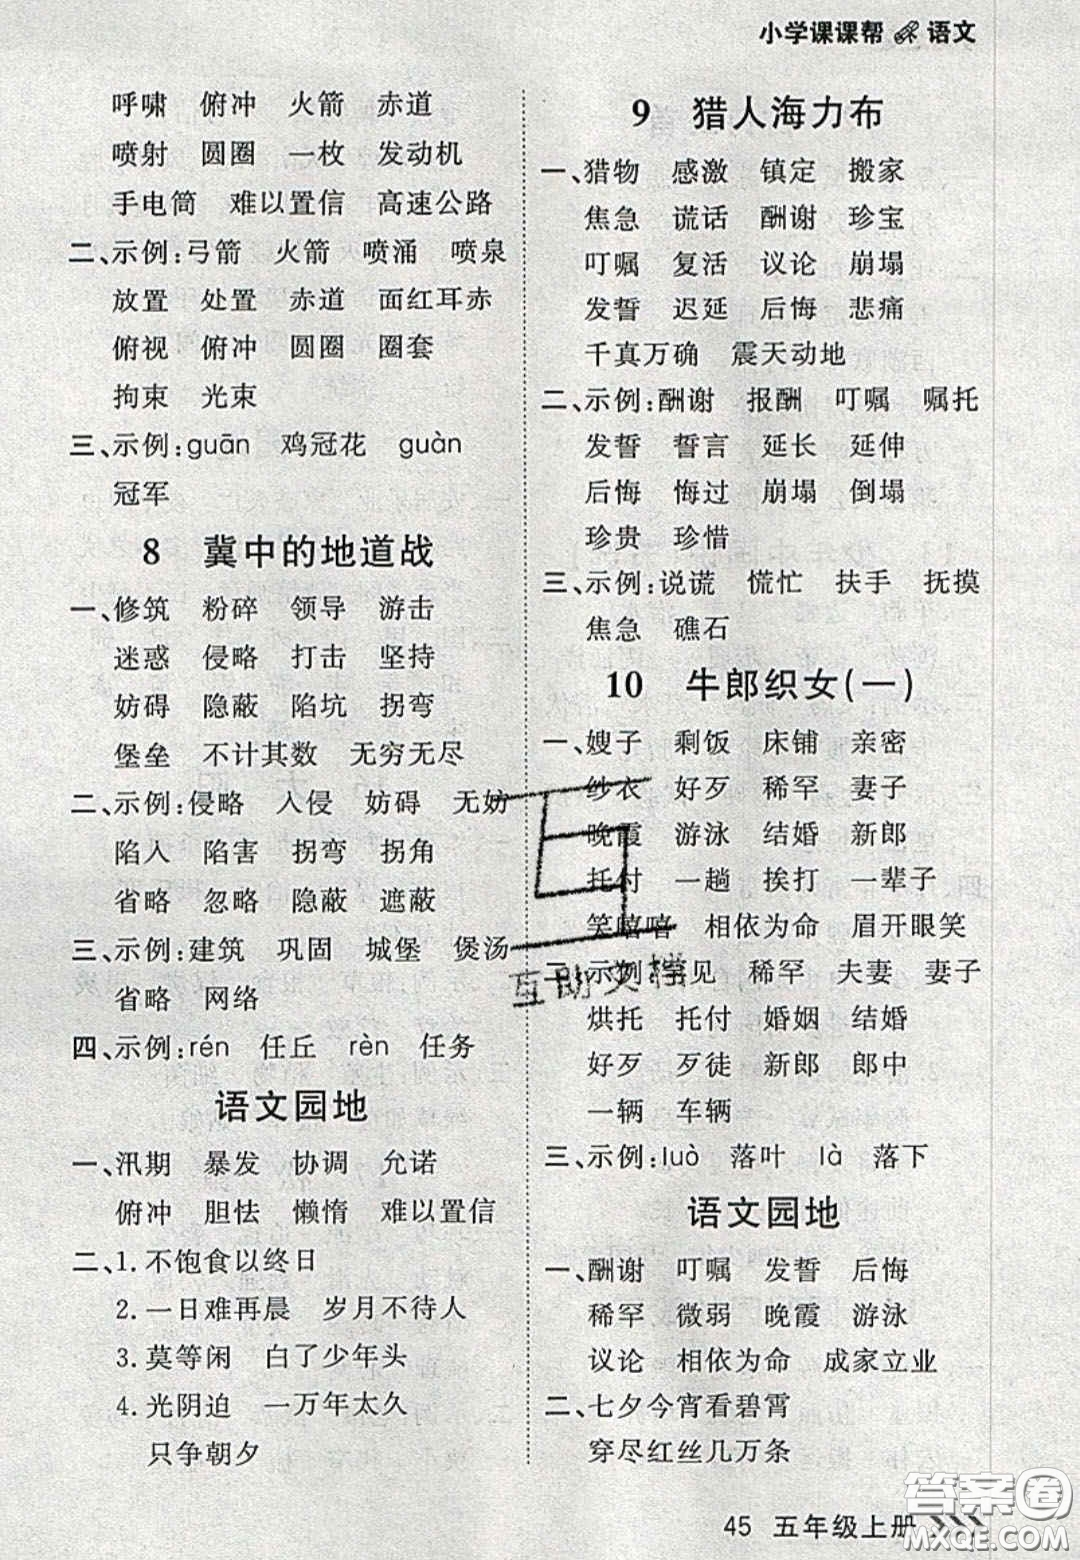 小学课课帮 语文
呼啸 俯冲 火箭 赤道
喷射 圆圈 一枚 发动机
手电筒 难以置信 高速公路
二、示例:弓箭 火箭 喷涌 喷泉
放置 处置 赤道 面红耳赤
俯视 俯冲 圆圈 圈套
拘束 光束
三、示例:guān 鸡冠花 guàn
冠军
8 冀中的地道战
一、修筑 粉碎 领导 游击
迷惑 侵略 打击 坚持
妨碍 隐蔽 陷坑 拐弯
堡垒 不计其数 无穷无尽
二、示例:侵略 入侵 妨碍 无妨
陷入 陷害 拐弯 拐角
省略 忽略 隐蔽 遮蔽
三、示例:建筑 巩固 城堡 煲汤
省略 网络
四、示例:rén 任丘 rèn 任务
语文园地
一、汛期 暴发 协调 允诺
俯冲 胆怯 懒惰 难以置信
二、1.不饱食以终日
2.一日难再晨 岁月不待人
3.莫等闲 白了少年头
4.光阴迫 一万年太久
只争朝夕
9 猎人海力布
一、猎物 感激 镇定 搬家
焦急 谎话 酬谢 珍宝
叮嘱 复活 议论 崩塌
发誓 迟延 后悔 悲痛
千真万确 震天动地
二、示例:酬谢 报酬 叮嘱 嘱托
发誓 誓言 延长 延伸
后悔 悔过 崩塌 倒塌
珍贵 珍惜
三、示例:说谎 慌忙 扶手 抚摸
焦急 礁石
10 牛郎织女(一)
一、嫂子 剩饭 床铺 亲密
纱衣 好歹 稀罕 妻子
晚霞 游泳 结婚 新郎
托付 一趟 挨打 一辈子
笑嘻嘻 相依为命 眉开眼笑
二、示例:罕见 稀罕 夫妻 妻子
烘托 托付 婚姻 结婚
好歹 歹徒 新郎 郎中
一辆 车辆
三、示例:luò 落叶 là 落下
语文园地
一、酬谢 叮嘱 发誓 后悔
稀罕 微弱 晚霞 游泳
议论 相依为命 成家立业
二、七夕今宵看碧霄
穿尽红丝几万条
互助文档
答案圈
MXQE.COM
45 五年级上册